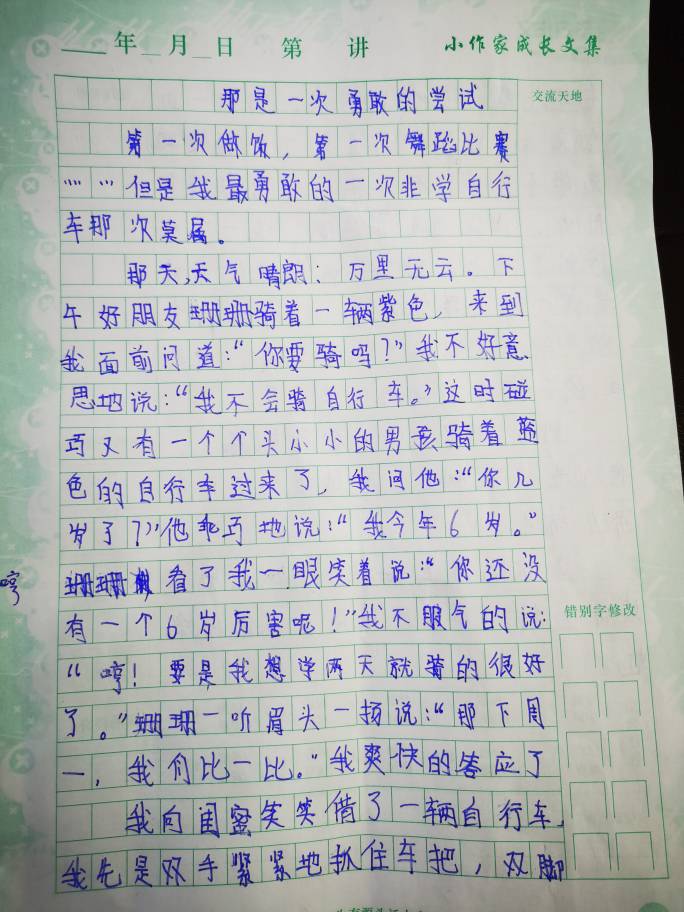 年 月 日 第 讲 小作家成长文集
交流天地
那是一次勇敢的尝试
第一次做饭，第一次舞蹈比赛
……但是我最勇敢的一次非学自行
车那次莫属。
那天，天气晴朗；万里无云。下
午好朋友珊珊骑着一辆紫色，来到
我面前问道：“你要骑吗？”我不好意
思地说：“我不会骑自行车。”这时碰
巧又有一个个头小小的男孩骑着蓝
色的自行车过来了，我问他：“你几
岁了？”他乖巧地说：“我今年6岁。”
珊珊看了我一眼笑着说：“你还没
哼
有一个6岁厉害呢！”我不服气的说：
错别字修改
“哼！要是我想学两天就骑的很好
了。”珊珊一听眉头一扬说：“那下周
一，我们比一比。”我爽快的答应了
我向闺蜜笑笑借了一辆自行车，
我先是双手紧紧地抓住车把，双脚